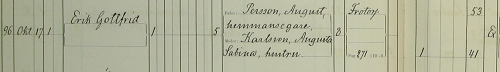 Persson, August, Frotorp 53
Erik Gottfrid hemmansegare,
96 Okt. 17. 1 1 5 Karlsson, Augusta 2
Sabina, hustru 271 1 41